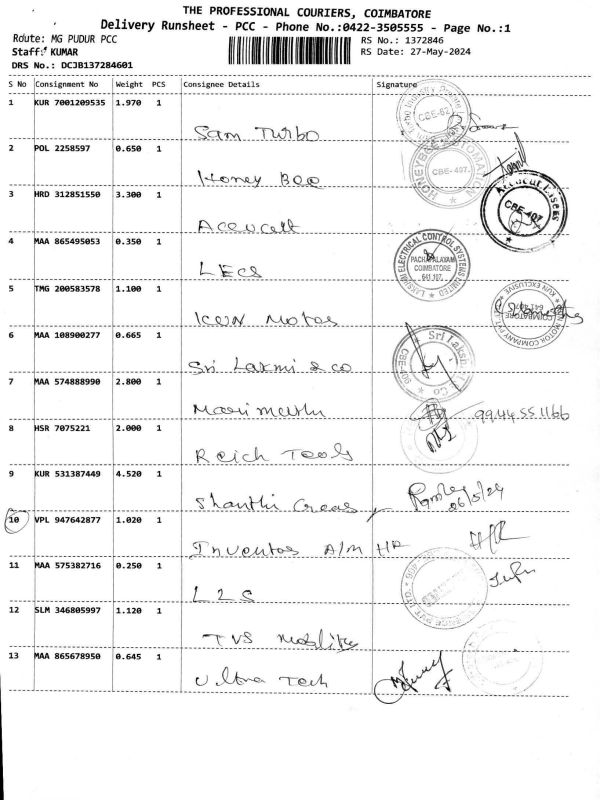 THE PROFESSIONAL COURIERS, COIMBATORE
Delivery Runsheet - PCC - Phone No.:0422-3505555 - Page No.:1
Route: MG PUDUR PCC
RS No.: 1372846
Staff: KUMAR
RS Date: 27-May-2024
DRS No.: DCJB137284601
S No Consignment No Weight PCS Consignee Details Signature
1 KUR 7001209535 1.970 1
Sam Turbo
CBE-62
2 POL 2258597 0.650 1
Honey Bee
HONEYBEE
CBE-407
3 HRD 312851550 3.300 1
CBE-407
4 MAA 865495053 0.350 1
LECS
LAKSHMI ELECTRICAL CONTROL SYSTEMS LIMITED
PACHAPALAYAM
COIMBATORE
641 107
5 TMG 200583578 1.100 1
KUN Motos
MOTOR COMPANY PVT
KUN EXCLUSIVE
COIMBATORE
6 MAA 108900277 0.665 1
Sri Laxmi & co
Sri Laksh
7 MAA 574888990 2.800 1
9944551166
8 HSR 7075221 2.000 1
Reich Tools
9 KUR 531387449 4.520 1
Shanthi Greas
10 VPL 947642877 1.020 1
Inventos A/M HR
HR
11 MAA 575382716 0.250 1
LLS
12 SLM 346805997 1.120 1
TVS
13 MAA 865678950 0.645 1
Ultra Tech